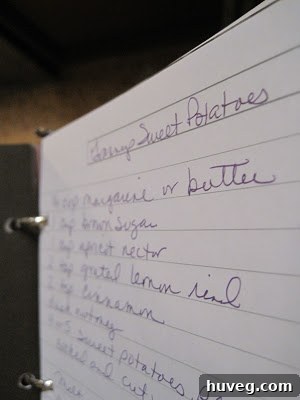 Sweet Potatoes
cup margarine or butter
cup brown sugar
cup apricot nectar
tsp grated lemon rind
tsp cinnamon
nutmeg
Sweet potatoes,
and cut
huveg.com